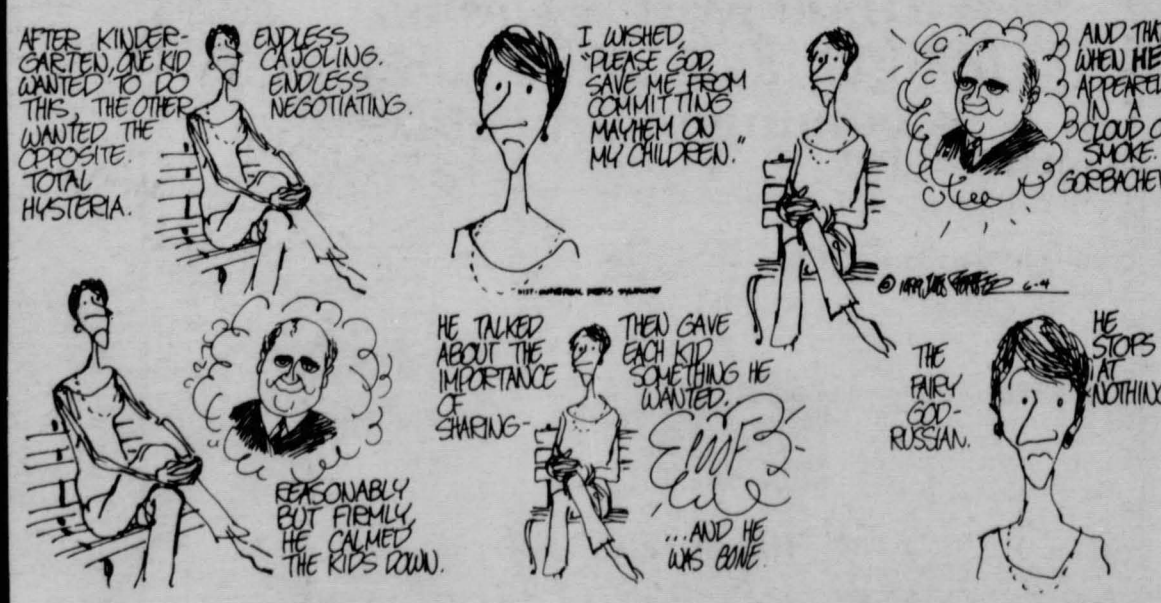 AFTER KINDER-
GARTEN, ONE KID
WANTED TO DO
THIS, THE OTHER
WANTED THE
OPPOSITE.
TOTAL
HYSTERIA.
ENDLESS
CAJOLING.
ENDLESS
NEGOTIATING.
I WISHED,
"PLEASE GOD,
SAVE ME FROM
COMMITTING
MAYHEM ON
MY CHILDREN."
AND THAT
WHEN HE
APPEARED
IN A
CLOUD O
SMOKE.
GORBACHEV
© 1989 JULES FEIFFER 6-4
UNIVERSAL PRESS SYNDICATE
REASONABLY
BUT FIRMLY,
HE CALMED
THE KIDS DOWN.
HE TALKED
ABOUT THE
IMPORTANCE
OF
SHARING-
THEN GAVE
EACH KID
SOMETHING HE
WANTED.
POOF
...AND HE
WAS GONE.
THE
FAIRY
GOD-
RUSSIAN.
HE
STOPS
AT
NOTHING